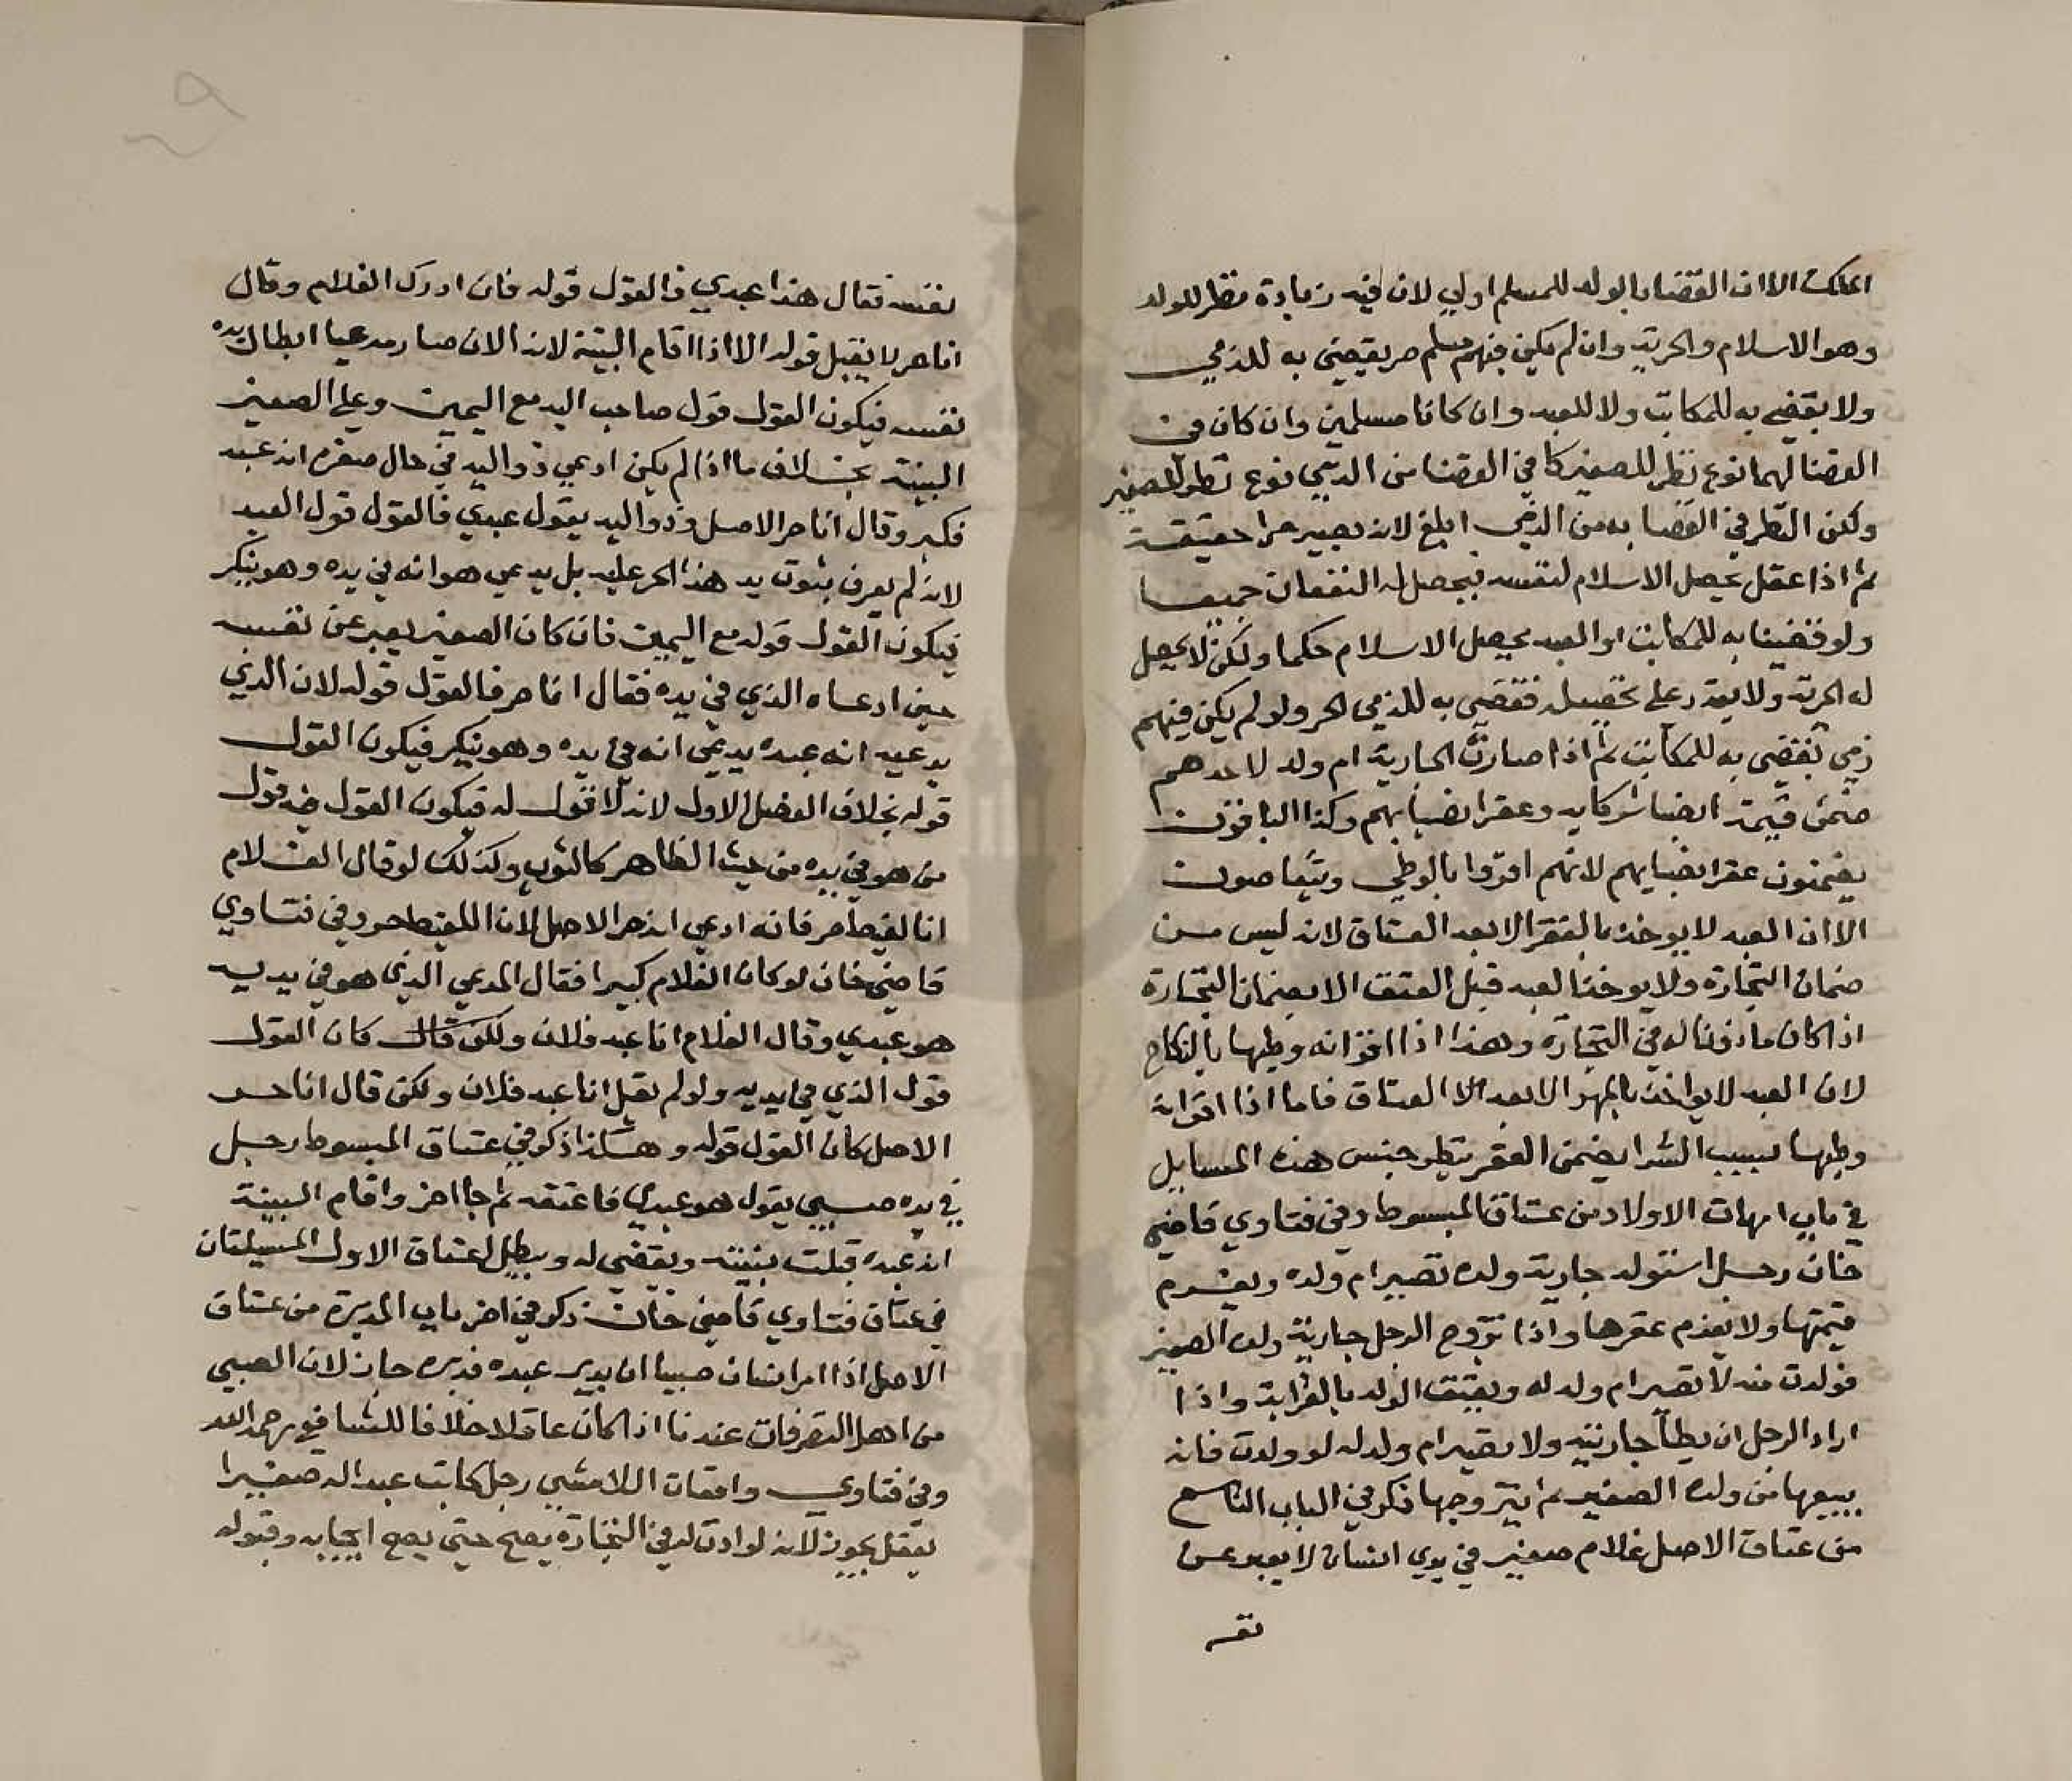 الملك الا ان القضا بالولد للمسلم اولي لان فيه زيادة نظر للولد
وهو الاسلام والحرية وان لم يكن فيهم مسلم حر يقضي به للذمي
ولا يقضي به للمكاتب ولا للعبد وان كانا مسلمين وان كان في
القضا لهما نوع نظر للصغير كما في القضا من الذمي نوع نظر للصغير
ولكن النظر في القضا به من الذمي ابلغ لانه يصير حرا حقيقة
ثم اذا عقل يحصل الاسلام لنفسه فيحصل له النفعان جميعا
ولو قضينا به للمكاتب او العبد يحصل الاسلام حكما ولكن لا يحصل
له الحرية ولا يقدر علي تحصيله فقضي به للذمي الحر ولو لم يكن فيهم
ذمي يقضي به للمكاتب ثم اذا صارت الجارية ام ولد لاحدهم
ضمن قيمة انصبا شركايه وعقر انصبايهم وكذا الباقون
يضمنون عقر انصبايهم لانهم اقروا بالوطي ويتقاصون
الا ان العبد لا يوخذ بالعقر الا بعد العتاق لانه ليس من
ضمان التجارة ولا يوخذ العبد قبل العتق الا بضمان التجارة
اذا كان ماذونا له في التجارة وهذا اذا اقر انه وطيها بالنكاح
لان العبد لا يواخذ بالمهر الا بعد الا العتاق فاما اذا اقر انه
وطيها بسبب الشرا يضمن العقر ينظر جنس هذه المسايل
في باب امهات الاولاد من عتاق المبسوط وفي فتاوي قاضي
خان رجل استولد جارية ولده تصير ام ولده ويغرم
قيمتها ولا يغرم عقرها واذا تزوج الرجل جارية ولده الصغير
فولدت منه لا تصير ام ولد له ويعتق الولد بالقرابة واذا
اراد الرجل ان يطأ جاريته ولا تصير ام ولد له لو ولدت فانه
يبيعها من ولده الصغير ثم يتزوجها ذكر في الباب التاسع
من عتاق الاصل غلام صغير في يدي انسان لا يعبر عن
نفسه
نفسه فقال هذا عبدي فالقول قوله فان ادرك الغلام وقال
انا حر لا يقبل قوله الا اذا اقام البينة لانه الان صار مدعيا ابطال يده
نفسه فيكون القول قول صاحب اليد مع اليمين وعلي الصغير
البينة بخلاف ما اذا لم يكن ادعي ذو اليد في حال صغره انه عبد
فكبر وقال انا حر الاصل وذو اليد يقول عبدي فالقول قول العبد
لانه لم يعرف بثبوت يد هذا الحر عليه بل يدعي هو انه في يده وهو ينكر
فيكون القول قوله مع اليمين فان كان الصغير يعبر عن نفسه
حين ادعاه الذي في يده فقال انا حر فالقول قوله لان الذي
يدعيه انه عبده يدعي انه في يده وهو ينكر فيكون القول
قوله بخلاف الفصل الاول لانه لا قول له فيكون القول فيه قول
من هو في يده من حيث الظاهر كالثوب وكذلك لو قال الغلام
انا لقيط حر فانه ادعي انه حر الاصل لان اللقيط حر وفي فتاوي
قاضي خان لو كان الغلام كبيرا فقال المدعي الذي هو في يديه
هو عبدي وقال الغلام انا عبد فلان ولكن قال كان القول
قول الذي في يديه ولو لم يقل انا عبد فلان ولكن قال انا حر
الاصل كان القول قوله وهكذا ذكر في عتاق المبسوط رجل
في يده صبي يقول هو عبدي فاعتقه ثم جا اخر واقام البينة
انه عبده قبلت بينته ويقضي له ويبطل اعتاق الاول المسيلتان
في عتاق فتاوي قاضي خان ذكر في اخر باب المدبرة من عتاق
الاصل اذا امر انسان صبيا ان يدبر عبده فدبره جاز لان الصبي
من اهل التصرفات عندنا اذا كان عاقلا خلافا للشافعي رحمه الله
وفي فتاوي واقعات اللامشي رجل كاتب عبدا له صغيرا
يعقل يجوز لانه لو اذن له في التجارة يصح حتي يصح ايجابه وقبوله